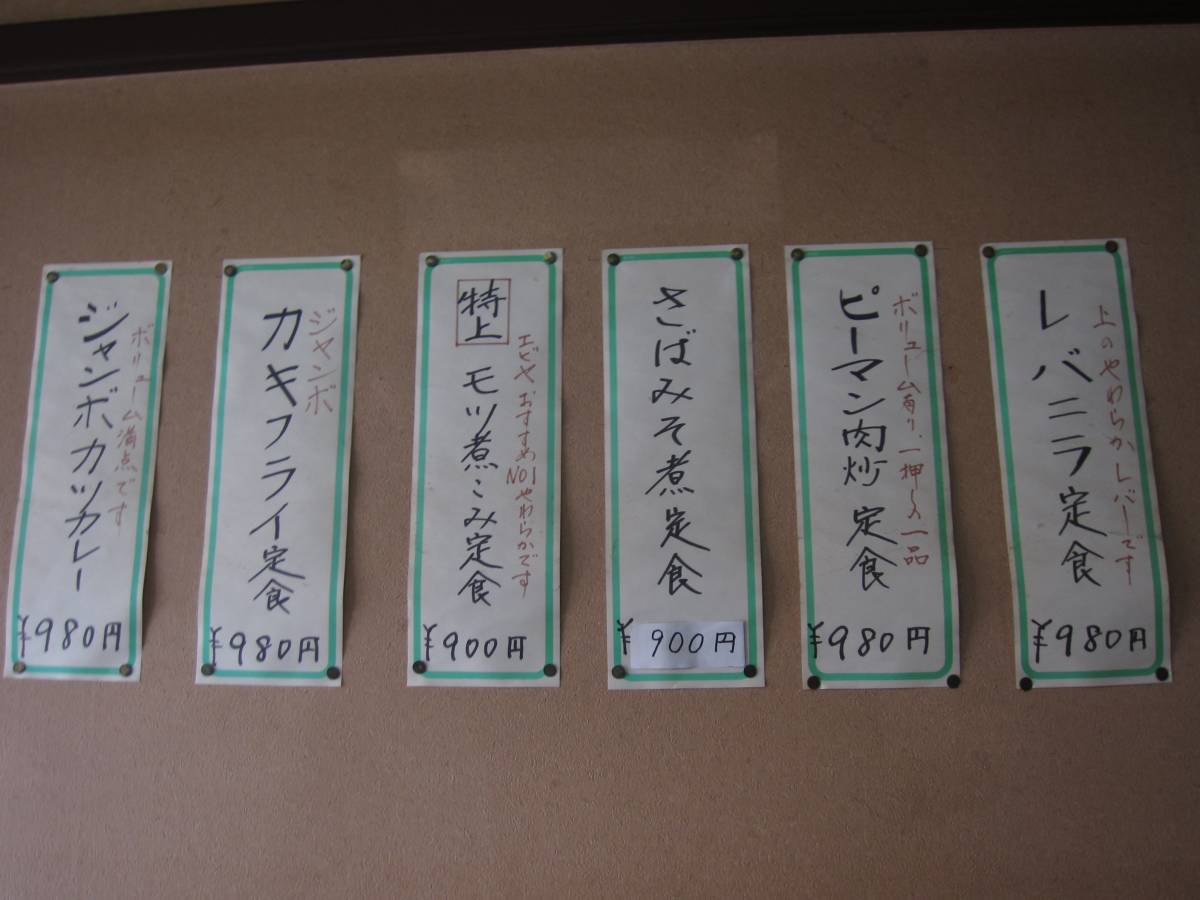 レバニラ定食
上のやわらかレバーです
¥980円
ピーマン肉炒定食
ボリューム有り、一押しの一品
¥980円
さばみそ煮定食
¥900円
特上
モツ煮こみ定食
エビヤおすすめNO1やわらかです
¥900円
ジャンボ
カキフライ定食
¥980円
ジャンボカツカレー
ボリューム満点です
¥980円